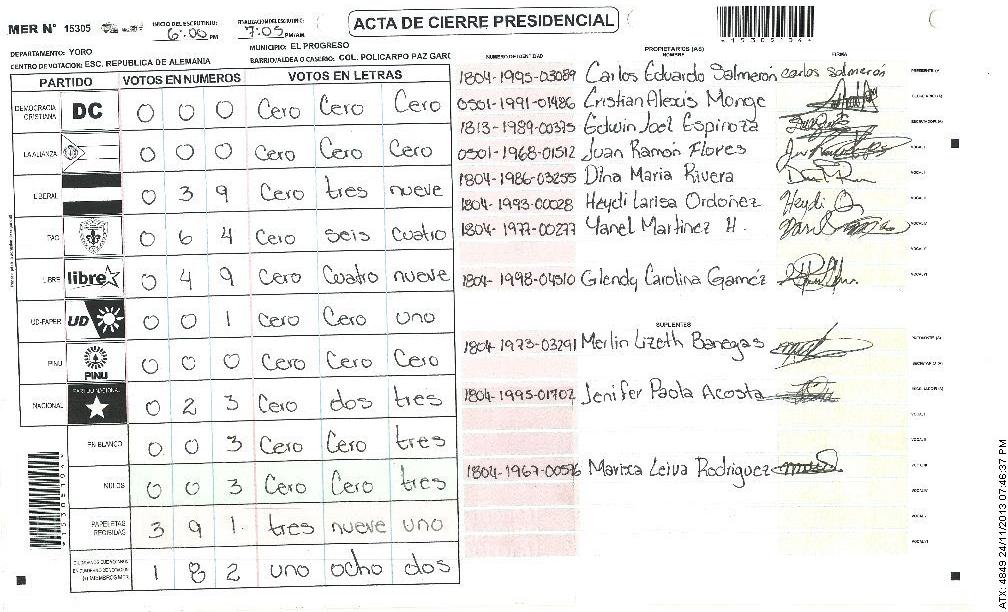 MER N° 15305
INICIO DEL ESCRUTINIO: 6:00 PM
FINALIZACION DEL ESCRUTINIO: 7:05 PM/AM
ACTA DE CIERRE PRESIDENCIAL
DEPARTAMENTO: YORO
MUNICIPIO: EL PROGRESO
CENTRO DE VOTACION: ESC. REPUBLICA DE ALEMANIA
BARRIO/ALDEA O CASERIO: COL. POLICARPO PAZ GARC
PARTIDO VOTOS EN NUMEROS VOTOS EN LETRAS
DEMOCRACIA CRISTIANA DC 0 0 0 Cero Cero Cero
LA ALIANZA 0 0 0 Cero Cero Cero
LIBERAL 0 3 9 Cero tres nueve
PAC 0 6 4 Cero seis cuatro
LIBRE libre 0 4 9 Cero Cuatro nueve
UD-FAPER UD 0 0 1 Cero Cero uno
PINU PINU 0 0 0 Cero Cero Cero
NACIONAL PARTIDO NACIONAL 0 2 3 Cero dos tres
EN BLANCO 0 0 3 Cero Cero tres
NULOS 0 0 3 Cero Cero tres
PAPELETAS RECIBIDAS 3 9 1 tres nueve uno
1 8 2 uno ocho dos
PROPIETARIOS (AS)
NUMERO DE IDENTIDAD NOMBRE FIRMA
1804-1995-03089 Carlos Eduardo Salmerón carlos salmerón
0501-1991-01486 Cristian Alexis Monge
1813-1989-00375 Edwin Joel Espinoza
0501-1968-01512 Juan Ramón Flores
1804-1986-03255 Dina Maria Rivera
1804-1993-00028 Heydi Larisa Ordoñez Heydi O
1804-1977-00277 Yanel Martinez H.
1804-1998-04510 Glendy Carolina Gamez
SUPLENTES
1804-1973-03291 Merlin Lizeth Banegas
1804-1995-01702 Jenifer Paola Acosta
1804-1967-00576 Marixa Leiva Rodriguez
ATX: 4849 24/11/2013 07:46:37 PM